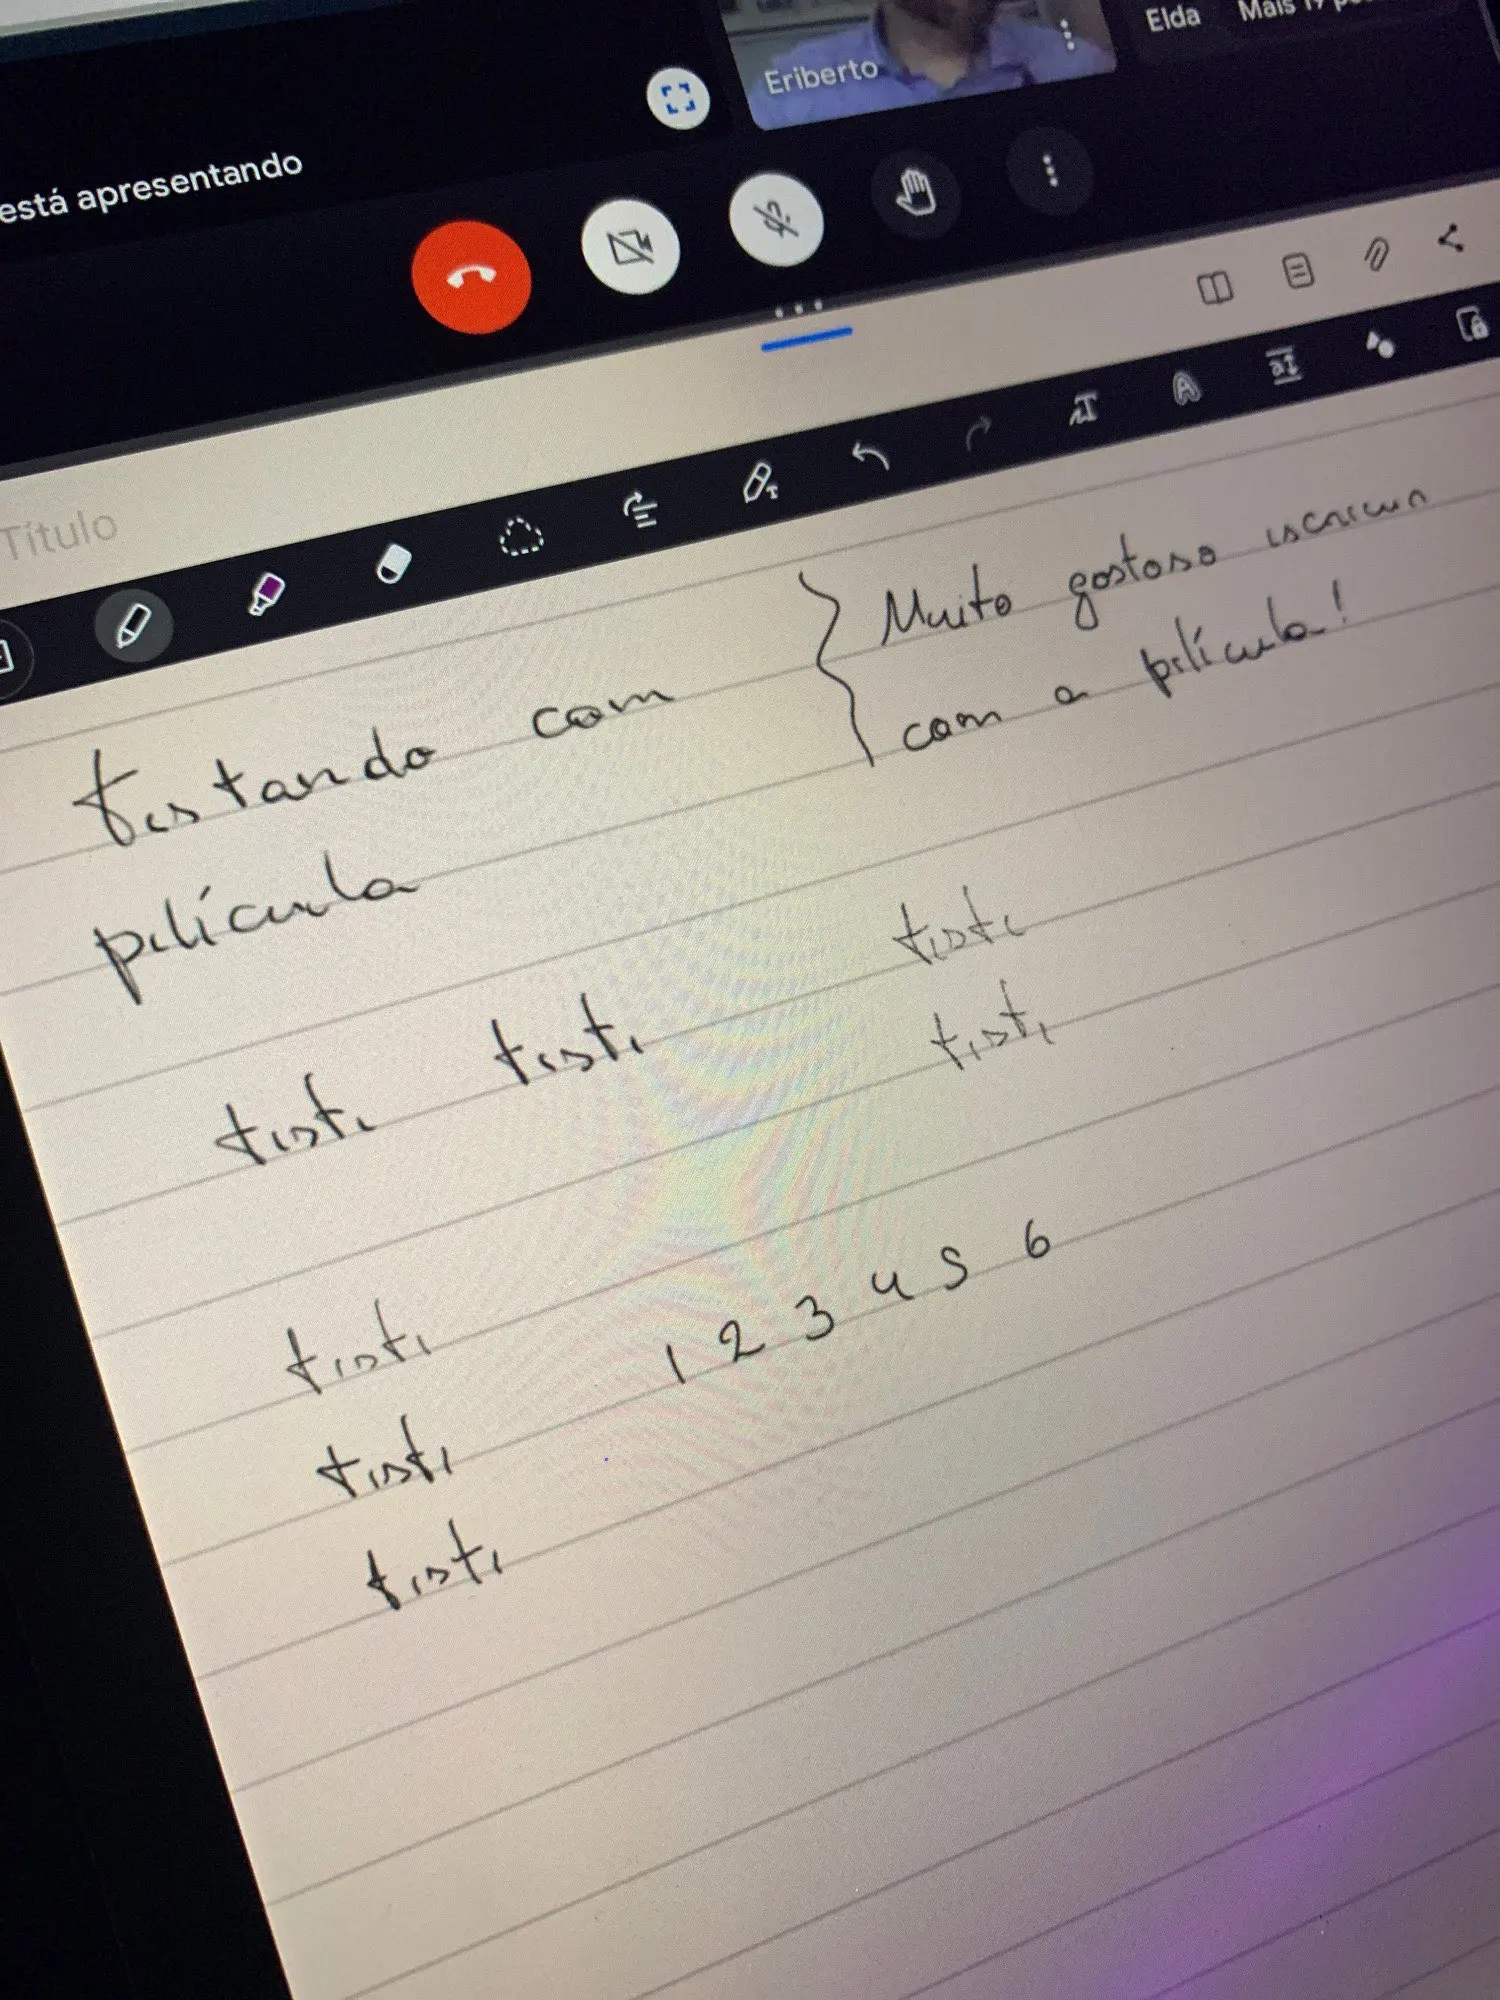 Elda
Eriberto
está apresentando
Título
testando com
película
Muito gostoso escrever
com a película!
teste teste teste
teste
teste
teste
teste
1 2 3 4 5 6